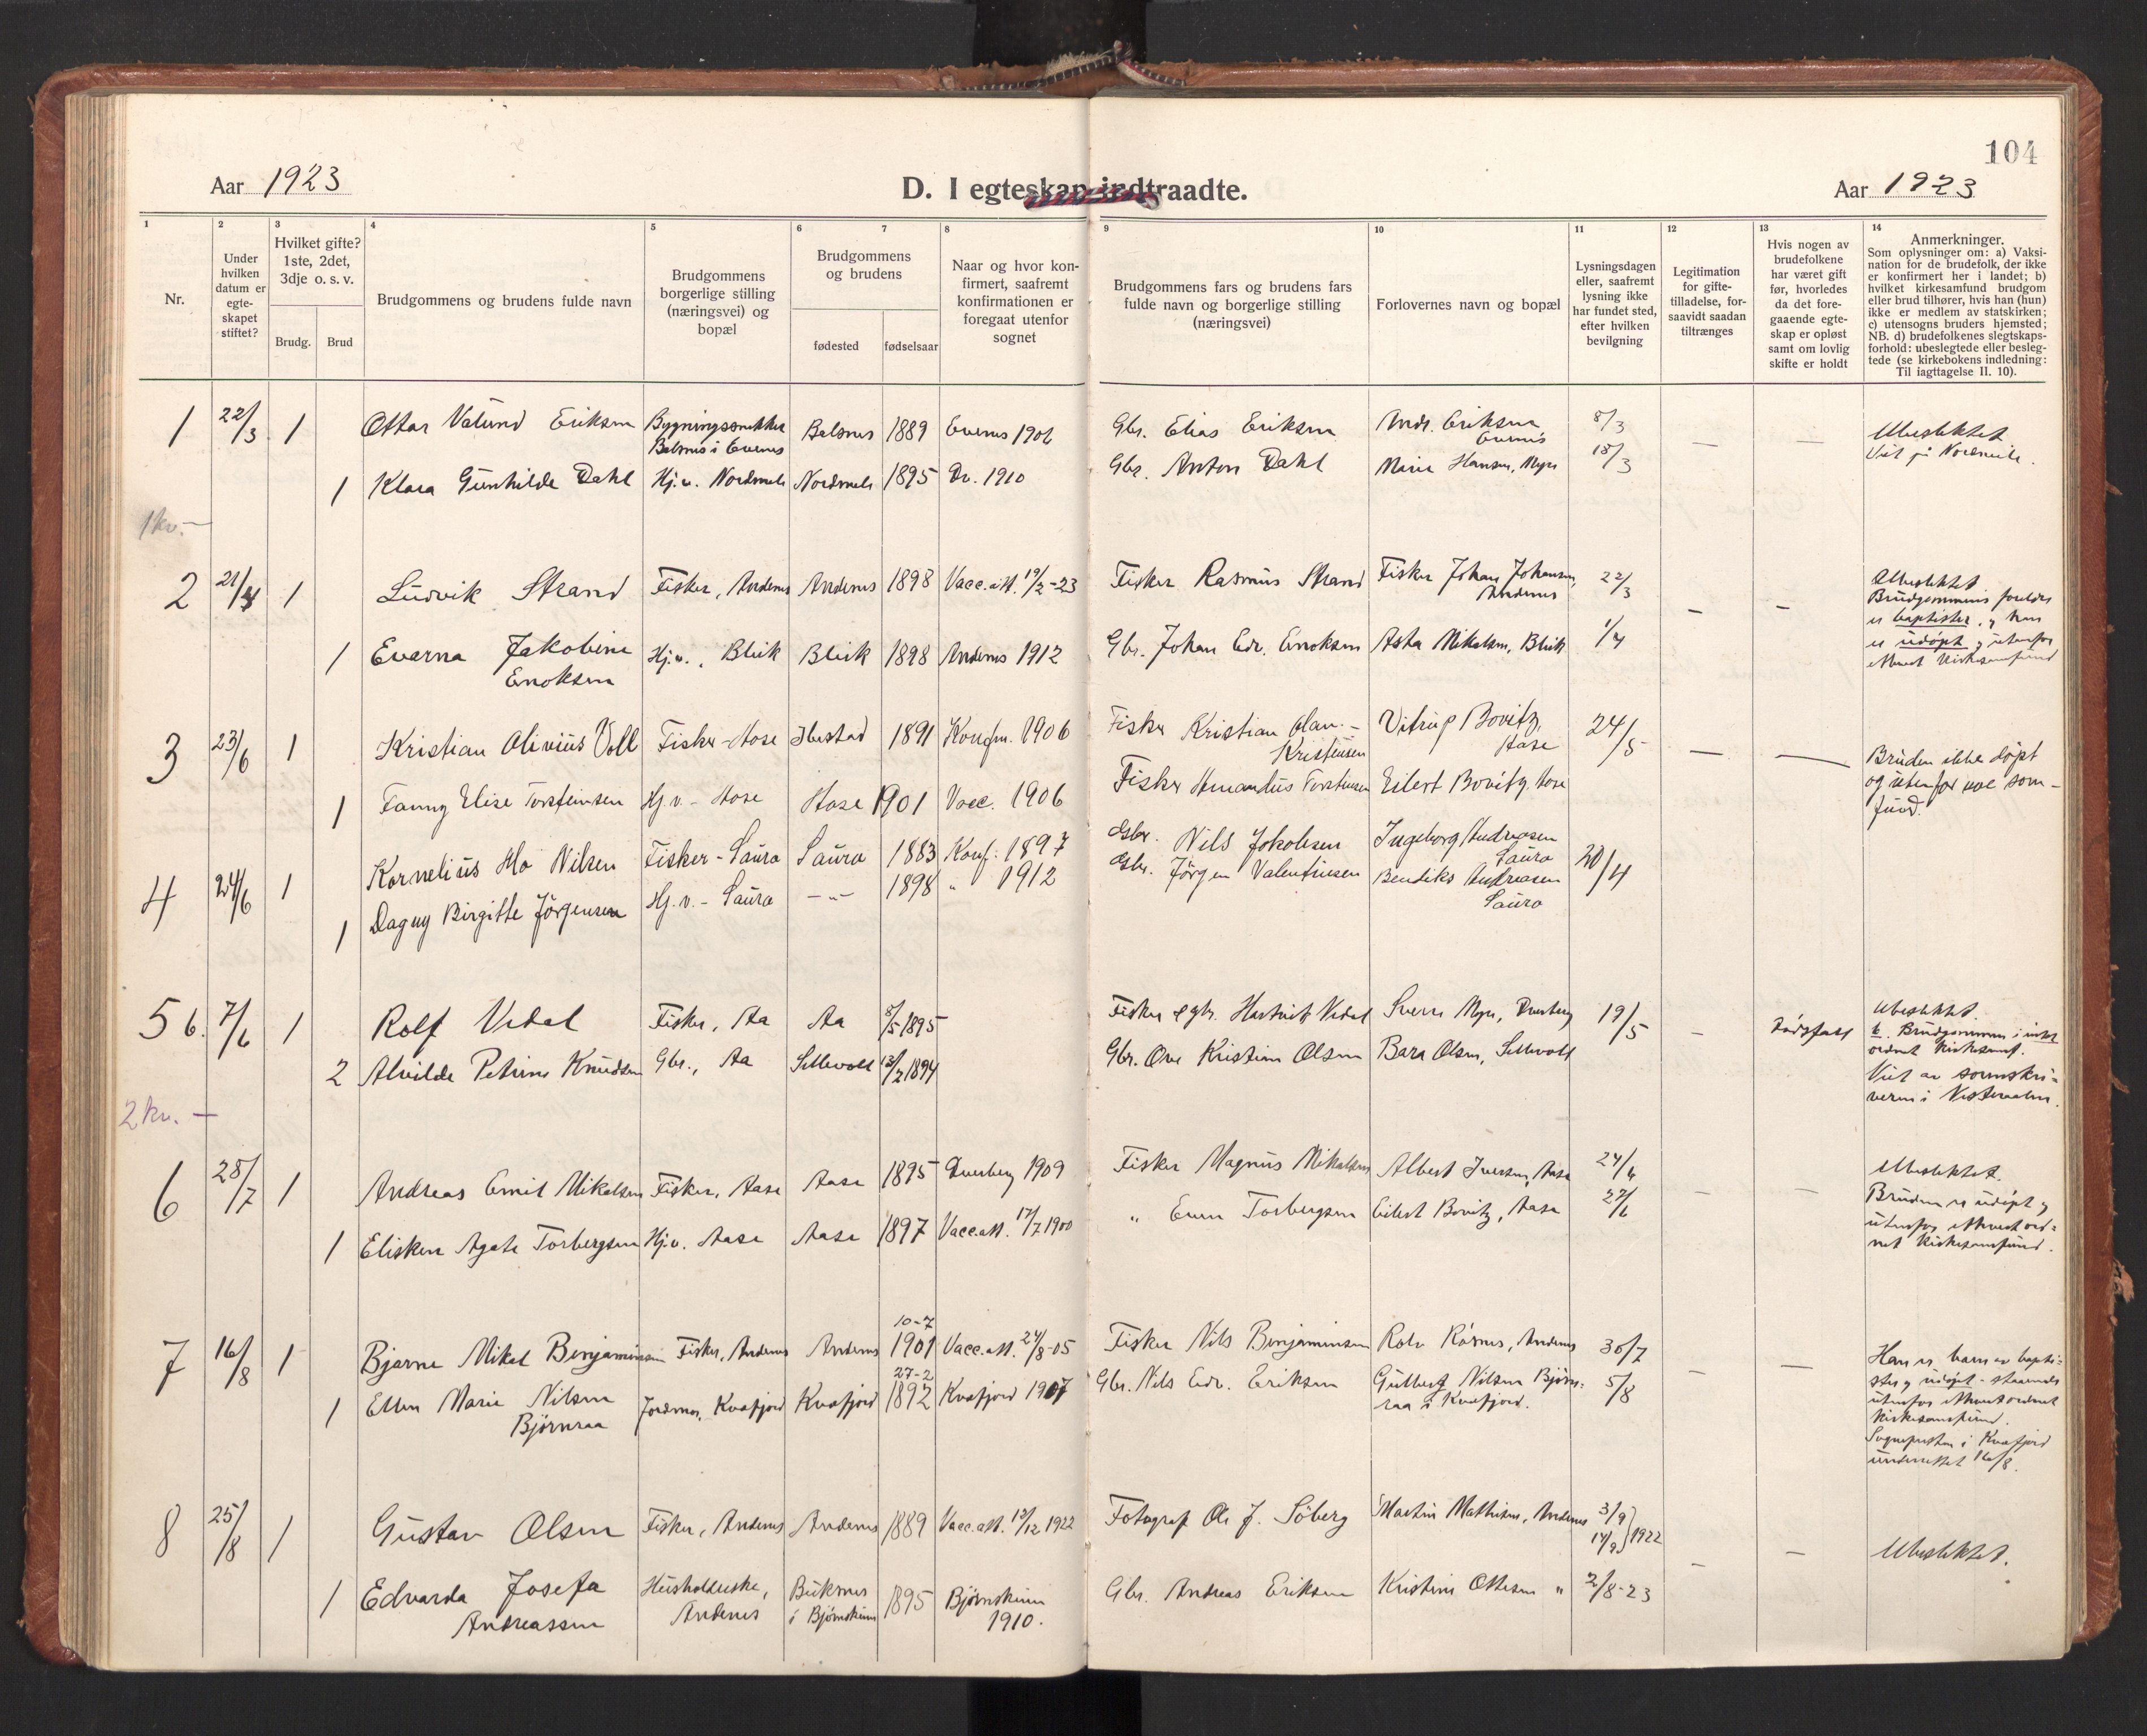 104
Aar 1923
D. I egteskap indtraadte.
Aar 1923
1
2
3
4
5
6
7
8
9
10
11
12
13
14
Nr.
Under hvilken datum er egte-skapet stiftet?
Hvilket gifte? 1ste, 2det, 3dje o. s. v.
Brudg.
Brud
Brudgommens og brudens fulde navn
Brudgommens borgerlige stilling (næringsvei) og bopæl
Brudgommens og brudens
fødested
fødselsaar
Naar og hvor kon-firmert, saafremt konfirmationen er foregaat utenfor sognet
Brudgommens fars og brudens fars fulde navn og borgerlige stilling (næringsvei)
Forlovernes navn og bopæl
Lysningsdagen eller, saafremt lysning ikke har fundet sted, efter hvilken bevilgning
Legitimation for gifte-tilladelse, for-saavidt saadan tiltrænges
Hvis nogen av brudefolkene har været gift før, hvorledes da det fore-gaaende egte-skap er opløst samt om lovlig skifte er holdt
Anmerkninger.
Som oplysninger om: a) Vaksi-nation for de brudefolk, der ikke er konfirmert her i landet; b) hvilket kirkesamfund brudgom eller brud tilhører, hvis han (hun) ikke er medlem av statskirken; c) utensogns bruders hjemsted; NB. d) brudefolkenes slegtskaps-forhold: ubeslegtede eller besleg-tede (se kirkebokens indledning: Til iagttagelse II. 10).
1 22/3 1 Ottar Valund Eriksen Bygningssnekker Balsnes i Evenes Balsnes 1889 Evenes 1906 Gbr. Elias Eriksen Andr. Eriksen Evenes 8/3 — — Ubeslektet
1 Klara Gunhilde Dahl Hj.v. Nordmela Nordmela 1895 Dv. 1910 Gbr. Anton Dahl Marie Hansen, Myre 18/3 Viet på Nordmela.
1 kv. —
2 21/4 1 Ludvik Strand Fisker, Andenes Andenes 1898 Vacc.att. 19/2-23 Fisker Rasmus Strand Fisker Johan Johansen, Andenes 22/3 — — Ubeslektet
Brudgommens foreldre
er baptister, og han
er udøpt og utenfor
ethvert kirkesamfund
1 Evarna Jakobine Enoksen Hj.v., Bleik Bleik 1898 Andenes 1912 Gbr. Johan Edv. Enoksen Asta Mikalsen, Bleik 1/4
3 23/6 1 Kristian Olivius Voll Fisker - Aase Ibestad 1891 Konfm. 1906 Fisker Kristian Olau.- Kristensen Vitrup Bovitz, Aase 24/5 — — Bruden ikke døpt
og utenfor
fund.
1 Fanny Elise Torsteinsen Hj.v - Aase Aase 1901 Vacc. 1906 Fisker Amandus Torsteinsen Eilert Bovitz, Aase
4 24/6 1 Kornelius Nilsen Fisker - Saura Saura 1883 Konf. 1897 Gbr. Nils Jakobsen Ingeborg Andreasen Saura 20/4
1 Dagny Birgitte Jörgensen Hj.v. - Saura —"— 1898 " 1912 Gbr. Jörgen Valentinsen Bendiks Andreasen Saura
5 b. 7/6 1 Rolf Vedal Fisker, Aa Aa 8/5 1895 Fisker og gbr. Hartvik Vedal Sverre Myre, Dverberg 19/5 — Dødsfall Ubeslektet.
b. Brudgommen i intet
ordnet kirkesamf.
Viet av sorenskri-
veren i Vesteraalen.
2 Alvilde Petrine Knudsen Gbr., Aa Sellevoll 13/2 1894 Gbr. Ove Kristian Olsen Bara Olsen, Sellevoll
2 kv. —
6 28/7 1 Andreas Emil Mikalsen Fisker, Aase Aase 1895 Dverberg 1909 Fisker Magnus Mikalsen Albert Iversen, Aase 24/6 — — Ubeslektet.
Bruden er udøpt og
utenfor ethvert ord-
net kirkesamfund.
1 Elisken Agate Torbergsen Hj.v. Aase Aase 1897 Vacc.att. 17/7 1900 " Even Torbergsen Eilert Bovitz, Aase 27/6
7 16/8 1 Bjarne Mikal Benjaminsen Fisker, Andenes Andenes 10-7 1901 Vacc.att. 24/8-05 Fisker Nils Benjaminsen Rolv Rånes, Andenes 30/7 — — Han er barn av bapti-
ster og udøpt - staaende
utenfor ethvert ordnet
kirkesamfund.
Sogneprsten i Kvæfjord
underrettet 16/8.
1 Ellen Marie Nilsen Björnraa Jordmor, Kvæfjord Kvæfjord 27-2 1892 Kvæfjord 1907 Gbr. Nils Edv. Eriksen Gulberg Nilsen Björn-raa i Kvæfjord. 5/8
8 25/8 1 Gustav Olsen Fisker, Andenes Andenes 1889 Vacc.att. 13/12 1922 Fotograf Ole J. Söberg Martin Mathisen, Andenes 3/9 17/9 } 1922 — — Ubeslektet.
1 Edvarda Josefa Andreassen Husholderske, Andenes Buknes i Bjørnskinn 1895 Bjørnskinn 1910. Gbr. Andreas Eriksen Kristine Ottesen " 2/8-23